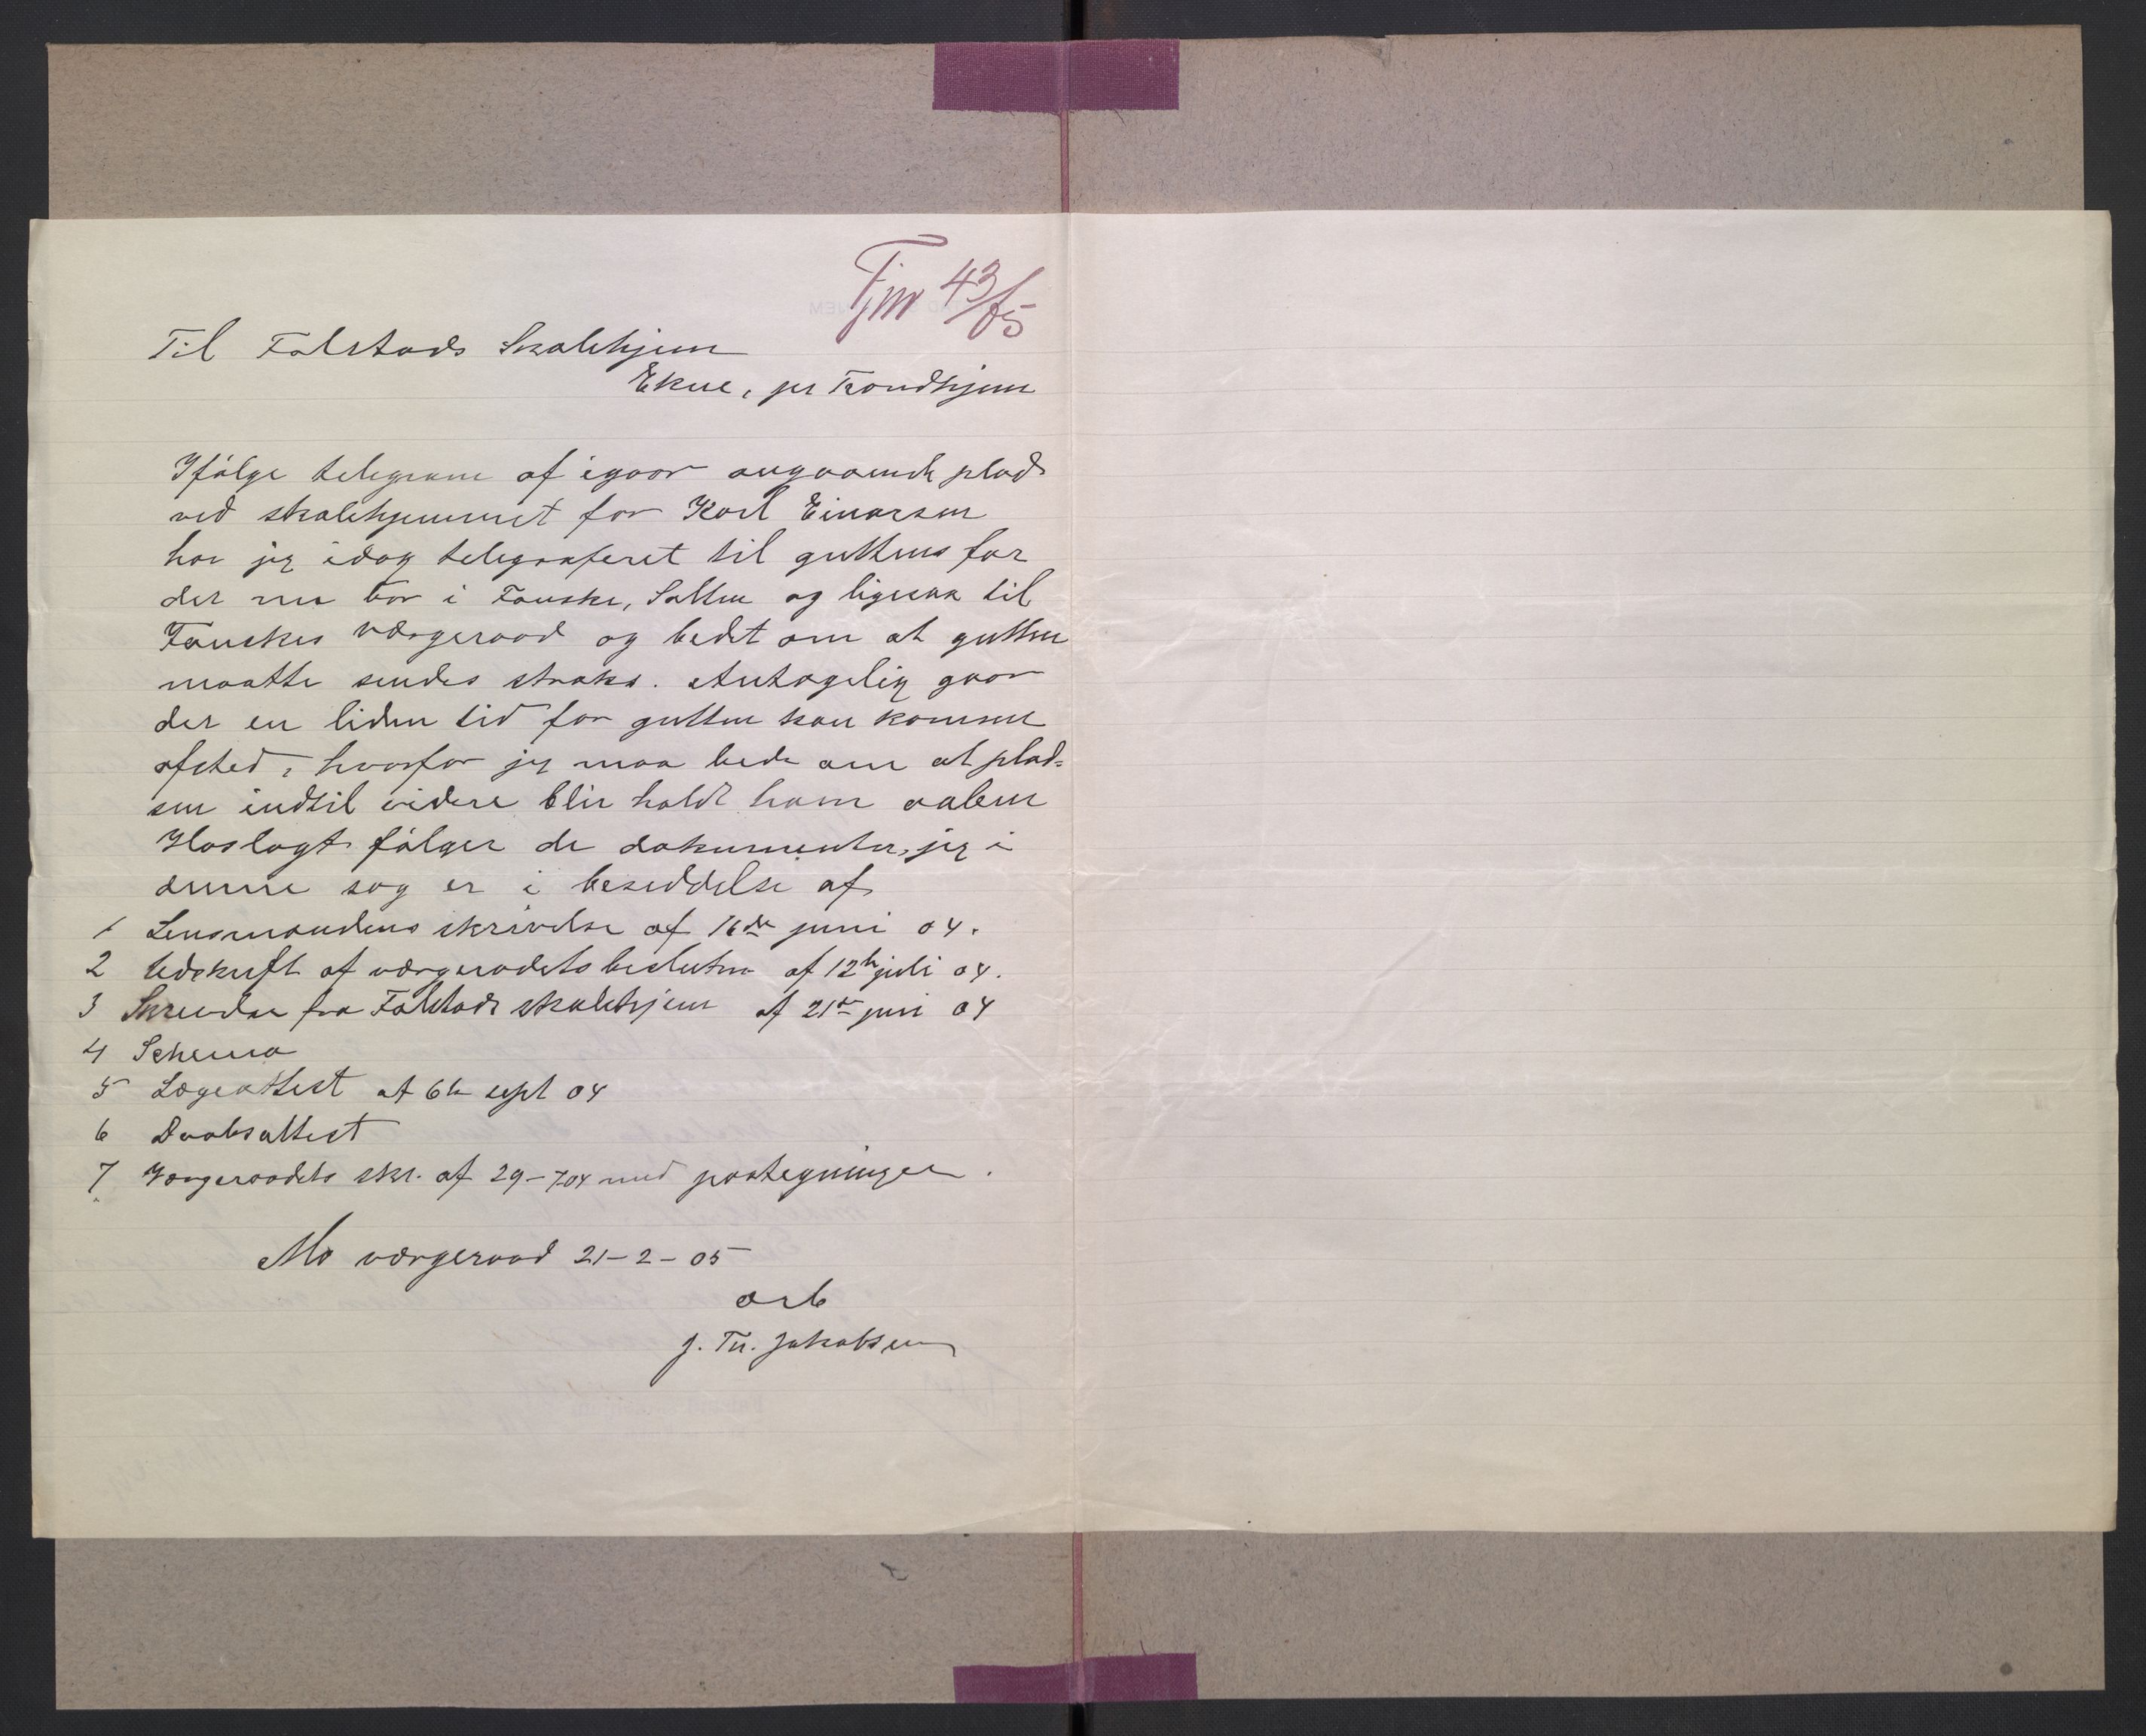 Fjm 43/05
Til Falstads Skolehjem
Ekne, pr Trondhjem
Ifölge telegram af igaar angaaende plads
ved skolehjemmet for Karl Einarsen
har jeg idag telegraferet til guttens far
der nu bor i Fauske, Salten og ligesaa til
Fauskes værgeraad og bedt om at gutten
maatte sendes straks. Antagelig gaar
der en liden tid før gutten kan komme
afsted, hvorfor jeg maa bede om at plad-
sen indtil videre blir holdt ham aaben
Hoslagt fölger de dokumenter, jeg i
denne sag er i besiddelse af
1 Lensmandens skrivelse af 16de juni 04.
2 Udskrift af værgeradets beslutn af 12te juli 04.
3 Skrivelse fra Falstads skolehjem af 21de juni 04
4 Schema
5 Lægeattest af 6te sept 04
6 Daabsattest
7 Værgeraadets skr. af 29-7-04 med paategninger.
Mo værgeraad 21-2-05
ærb
J. Th. Jakobsen